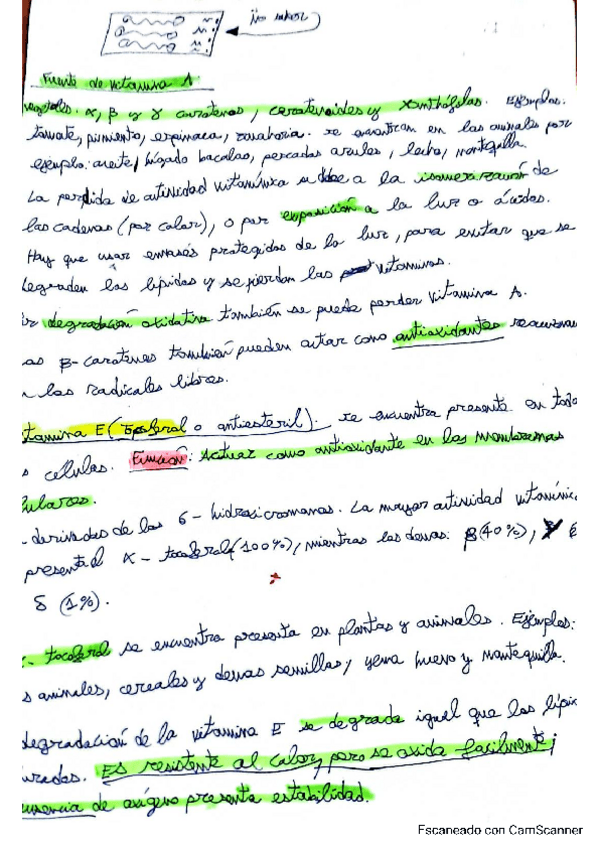 No
Fuente de vitamina A
vegetales. α, β y γ carotenos, carotenoides y xanthófilas. Ejemplos:
tomate, pimiento, espinaca, zanahoria. se encuentran en los animales por
ejemplo: aceite, hígado bacalao, pescados azules, leche, mantequilla.
La perdida de actividad vitamínica se debe a la isomerización de
las cadenas (por calor), o por exposición a la luz o ácidos.
Hay que usar envases protegidos de la luz, para evitar que se
degraden los lípidos y se pierdan las vitaminas.
degradación oxidativa también se puede perder vitamina A.
β-carotenos también pueden actuar como antioxidantes
los radicales libres.
tamina E (Tocoferol o antiesteril). se encuentra presente en
células. Función: Actuar como antioxidante en las membranas
ulares.
- derivados de los 6-hidroxicromanos. La mayor actividad
presenta el α-tocoferol (100%), mientras los demás: β (40%),
δ (1%).
- tocoferol se encuentra presente en plantas y animales. Ejemplos:
s animales, cereales y demás semillas, yema huevo y mantequilla.
degradación de la vitamina E se degrada igual que los
Es resistente al calor, pero se oxida fácilmente;
usencia de oxígeno presenta estabilidad.
Escaneado con CamScanner